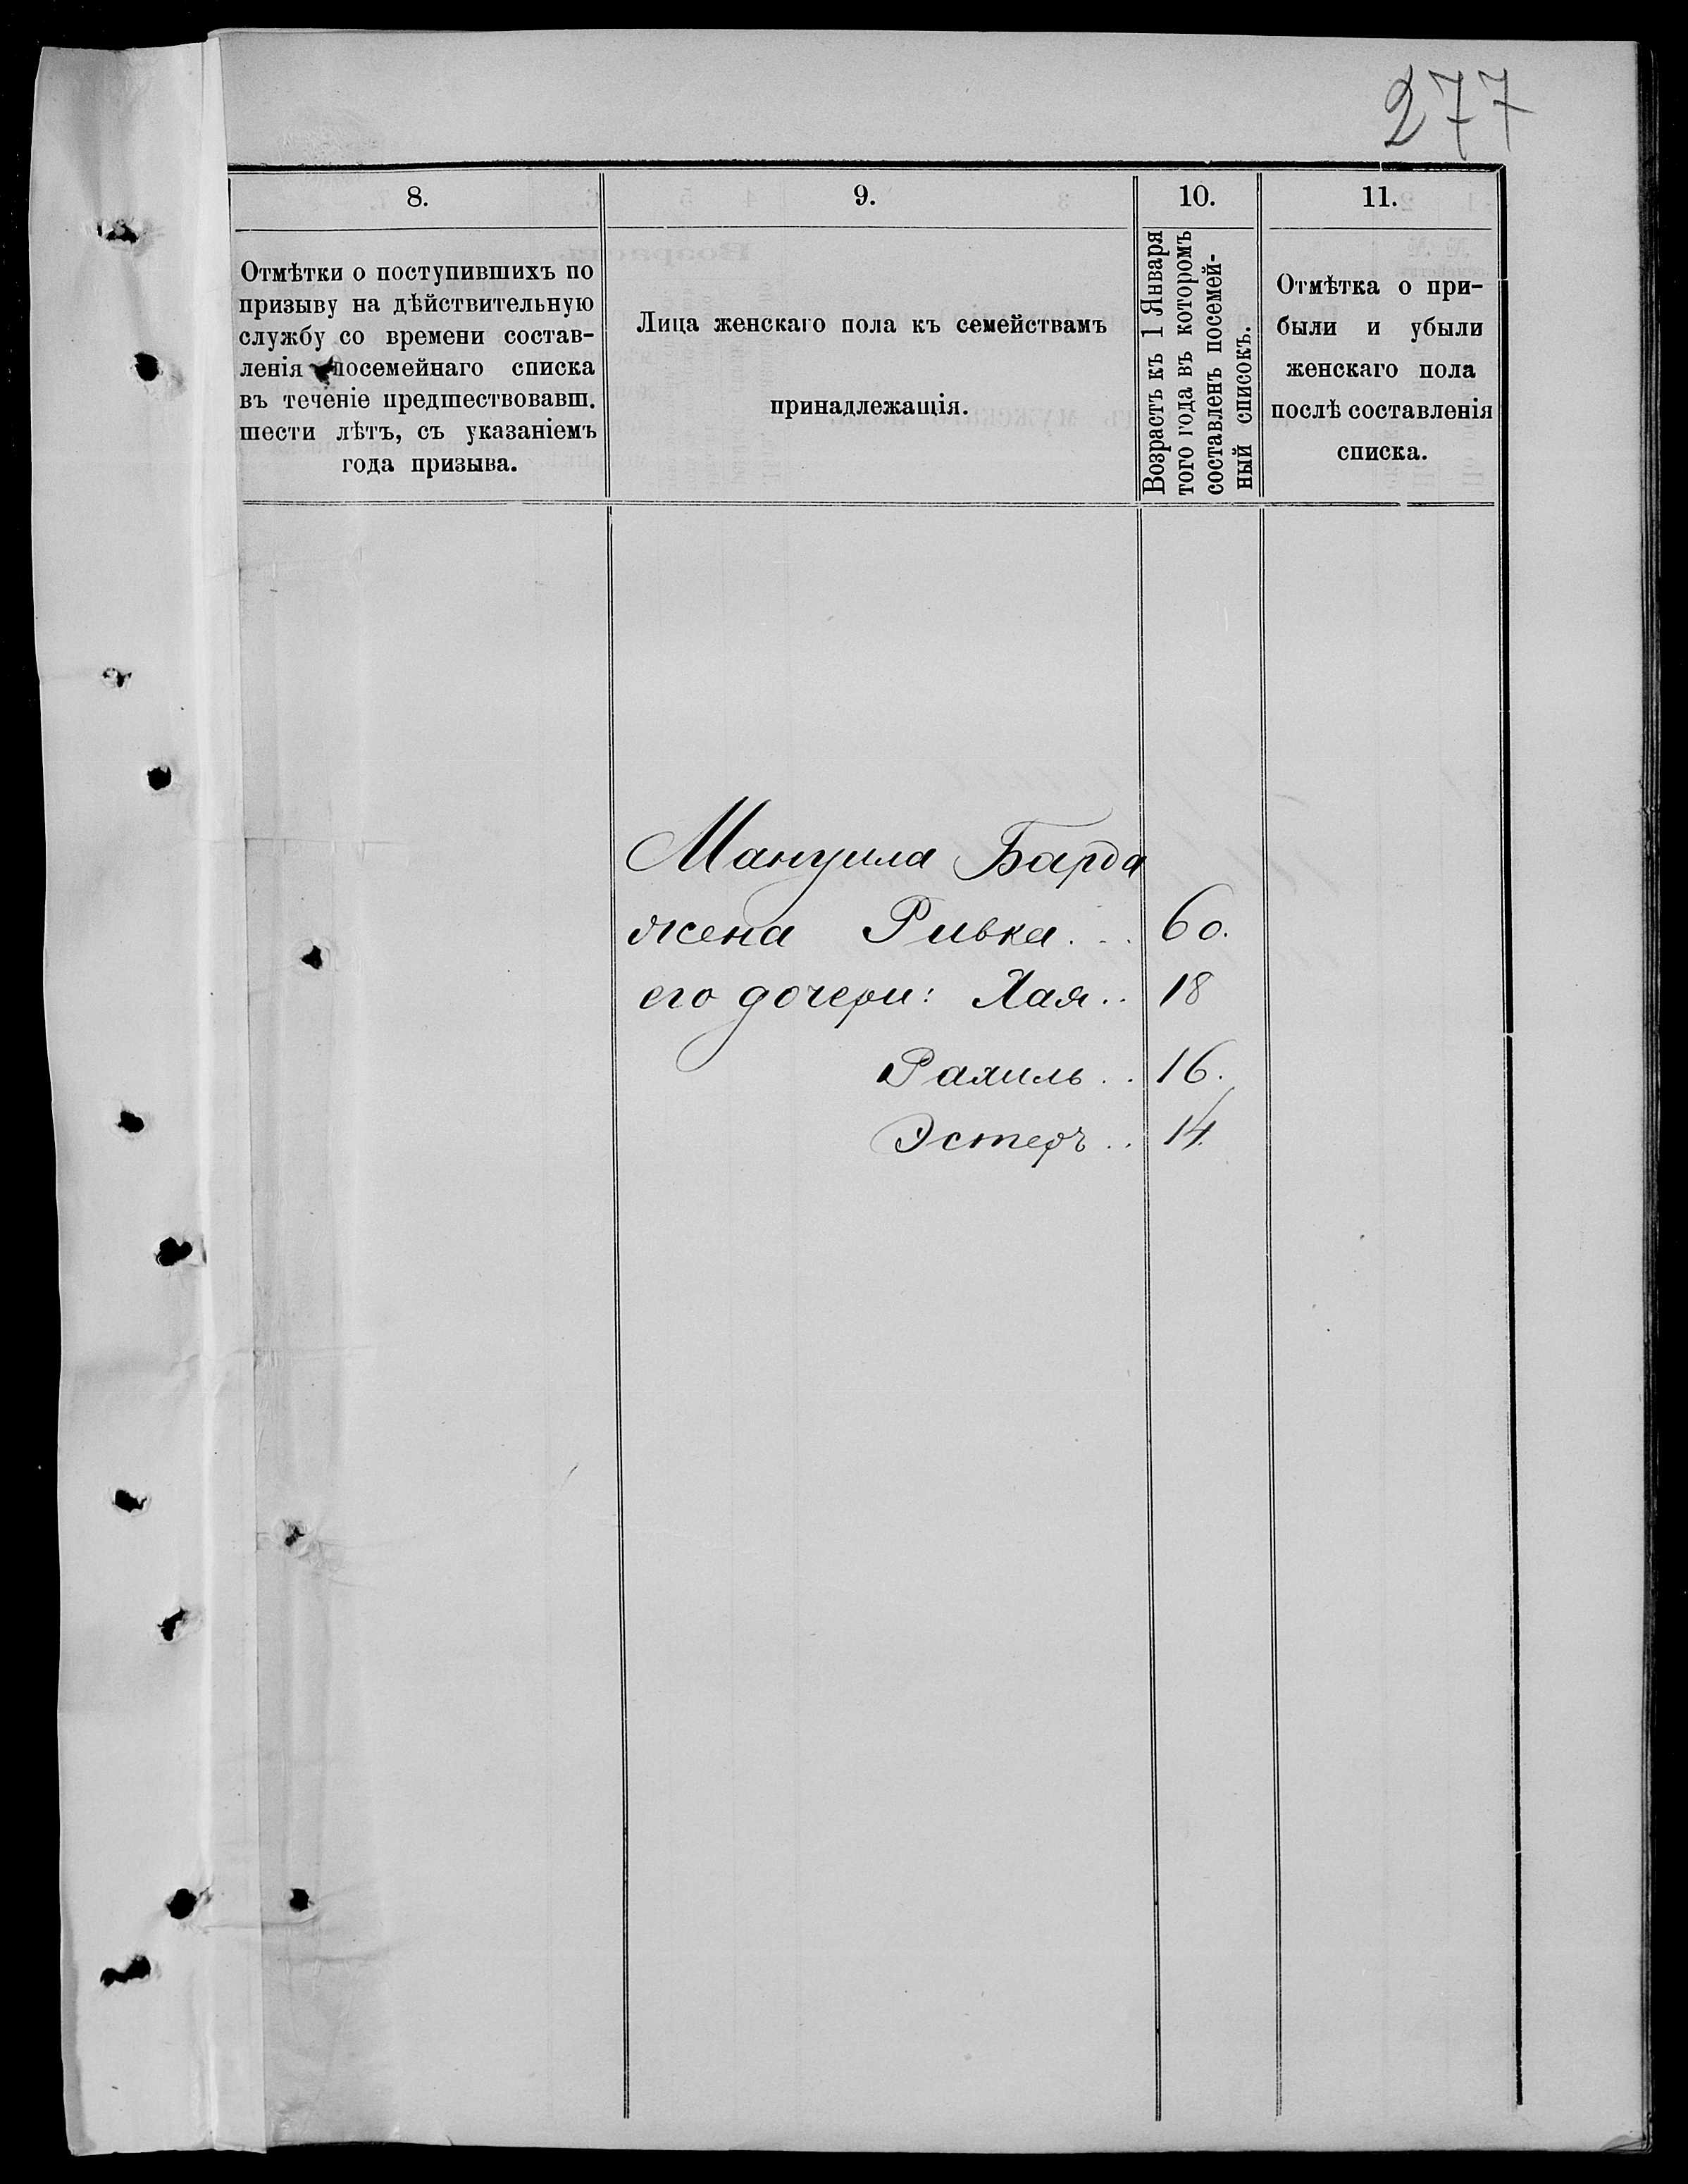 277
8.
9.
10.
11.
Отмѣтки о поступившихъ по
призыву на дѣйствительную
службу со времени состав-
ленія посемейнаго списка
въ теченіе предшествовавш.
шести лѣтъ, съ указаніемъ
года призыва.
Лица женскаго пола къ семействамъ
принадлежащія.
Возрастъ къ 1 Января
того года въ которомъ
составленъ посемей-
ный списокъ.
Отмѣтка о при-
были и убыли
женскаго пола
послѣ составленія
списка.
Мануила Барда
жена Ривка . . . 60.
его дочери: Хая . . 18
Рахиль . . 16.
Эстеръ . . 14.